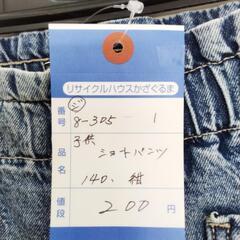 リサイクルハウスかざぐるま
ジ
8-305 1
品名
子供
ショートパンツ
140、紺
値段 200円